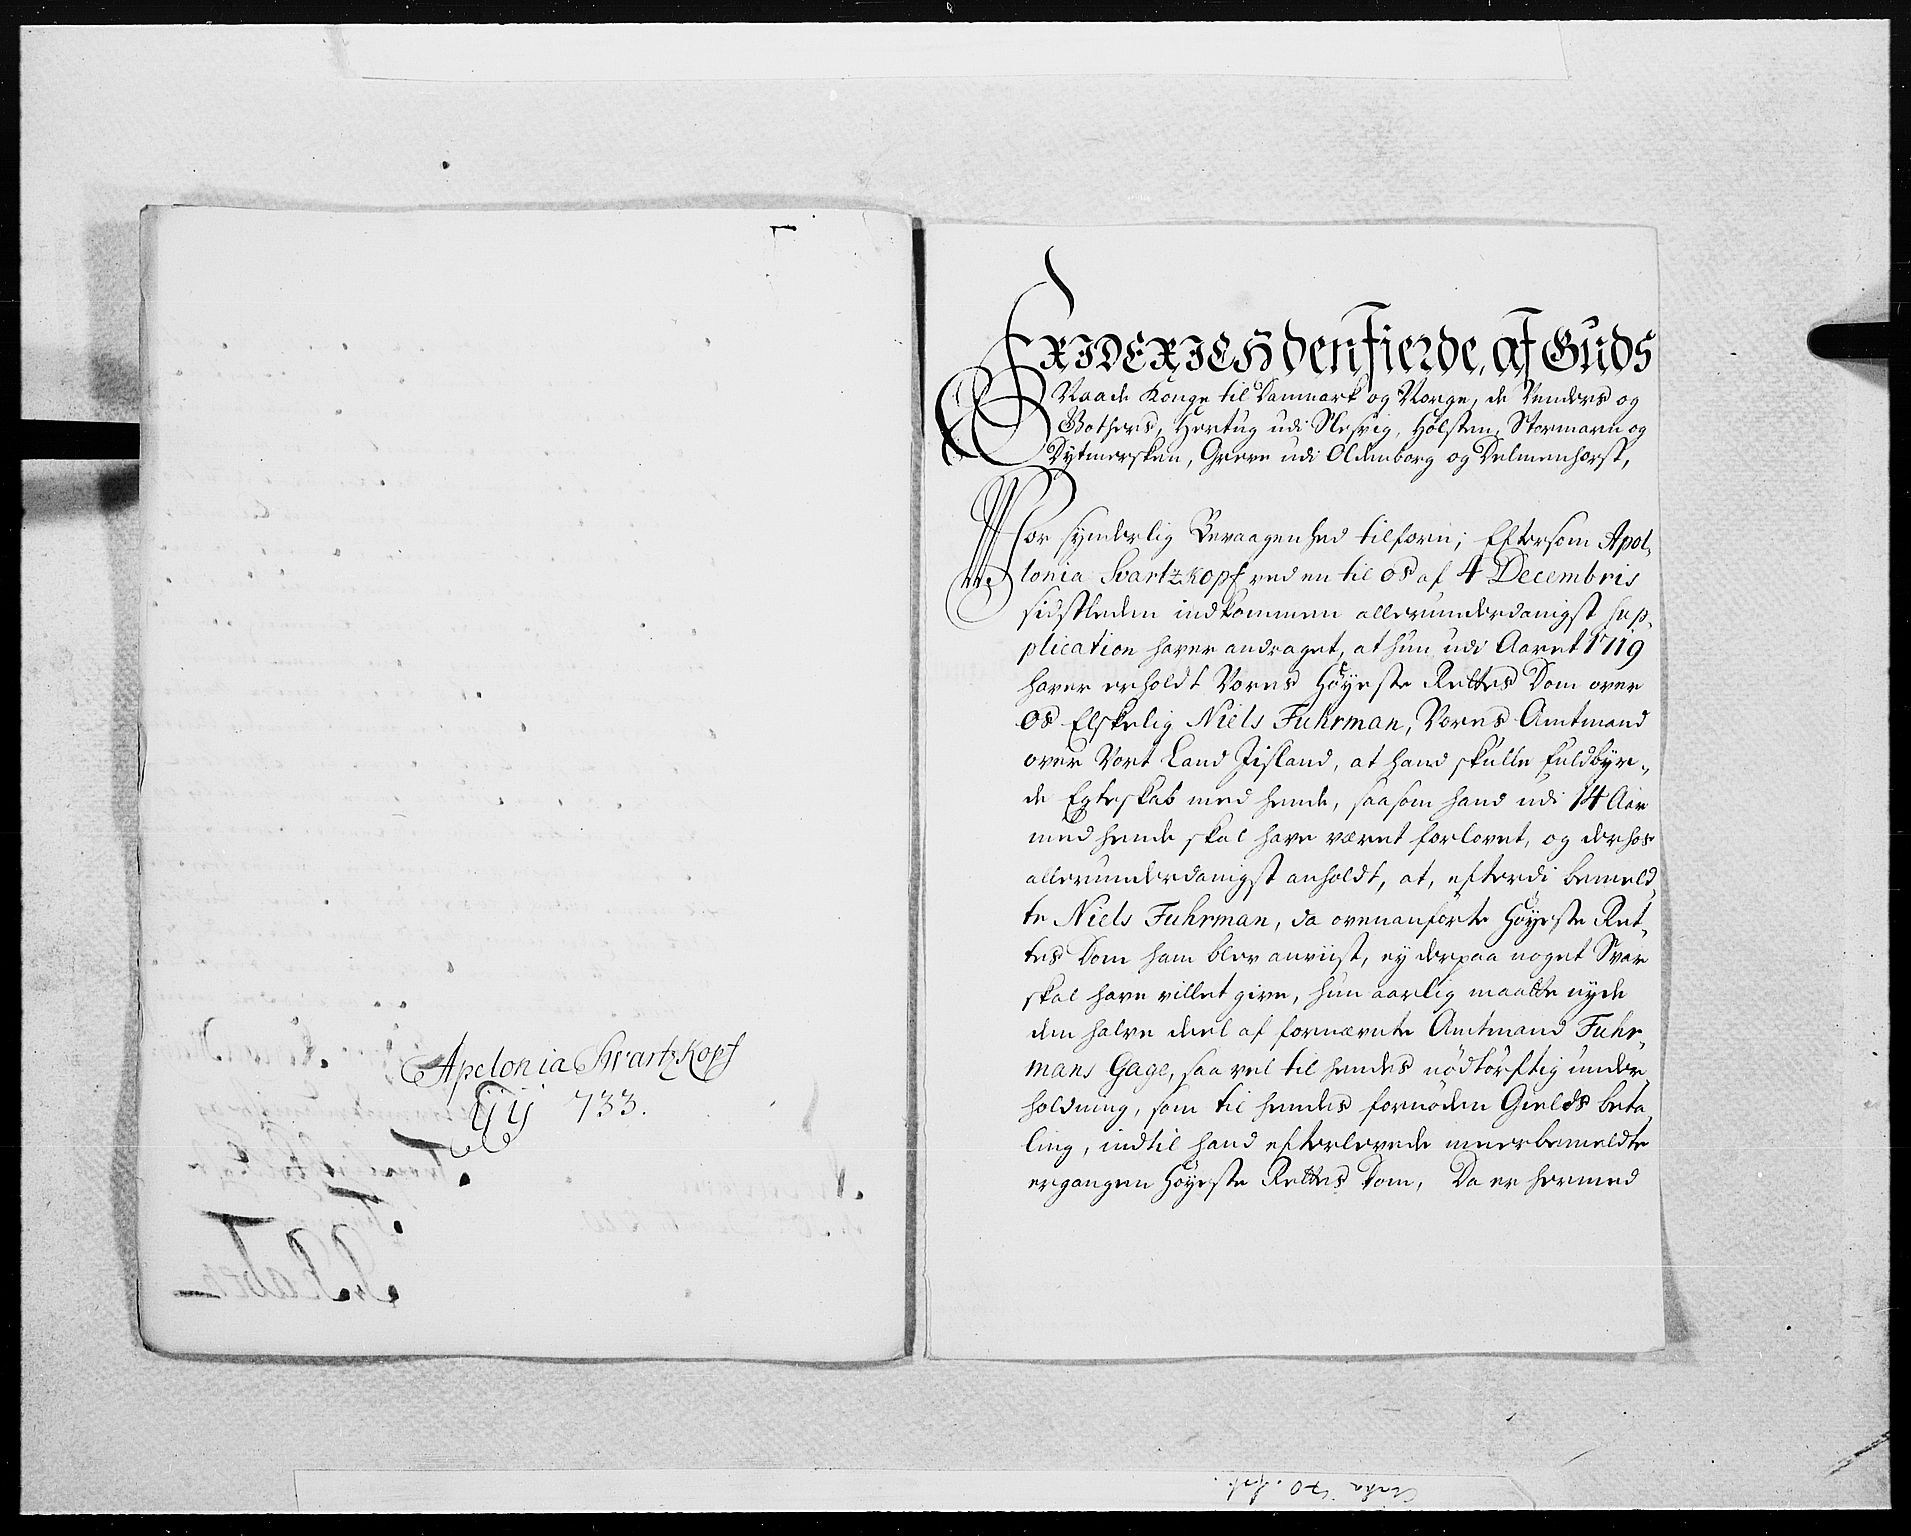 Apelonia Swartzkopf
733.
FRIDERICH den Fierde, af Guds
Naade Konge til Danmark og Norge, de Venders og
Gothers, Hertug udi Slesvig, Holsten, Stormarn og
Dytmersken, Greve udi Oldenborg og Delmenhorst,
Vor synderlig Bevaagenhed tilforn; Eftersom Apol-
lonia Svartzkopf ved en til os af 4 Decembris
sidstleden indkommen allerunderdanigst sup-
plication haver andraget, at hun udi Aaret 1719
haver erholdt Vores Høyeste Rettes Dom over
os Elskelig Niels Fuhrman, Vores Amtmand
over Vort Land Jisland, at hand skulle fuldbyr-
de Egteskab med hende, saasom hand udi 14 Aar
med hende skal have været forlovet, og derhos
allerunderdanigst anholdt, at, efterdi bemeld-
te Niels Fuhrman, da ovenanførte Høyeste Ret-
tes Dom ham blev anviist, ey derpaa noget Svar
skal have villet give, hun aarlig maatte nyde
den halve deel af fornævnte Amtmand Fuhr-
mans Gage, saa vel til hendes nødtørftig under-
holdning, som til hendes fornøden Gields beta-
ling, indtil hand efterlevede meerbemeldte
ergangen Høyeste Rettes Dom, Da er hermed